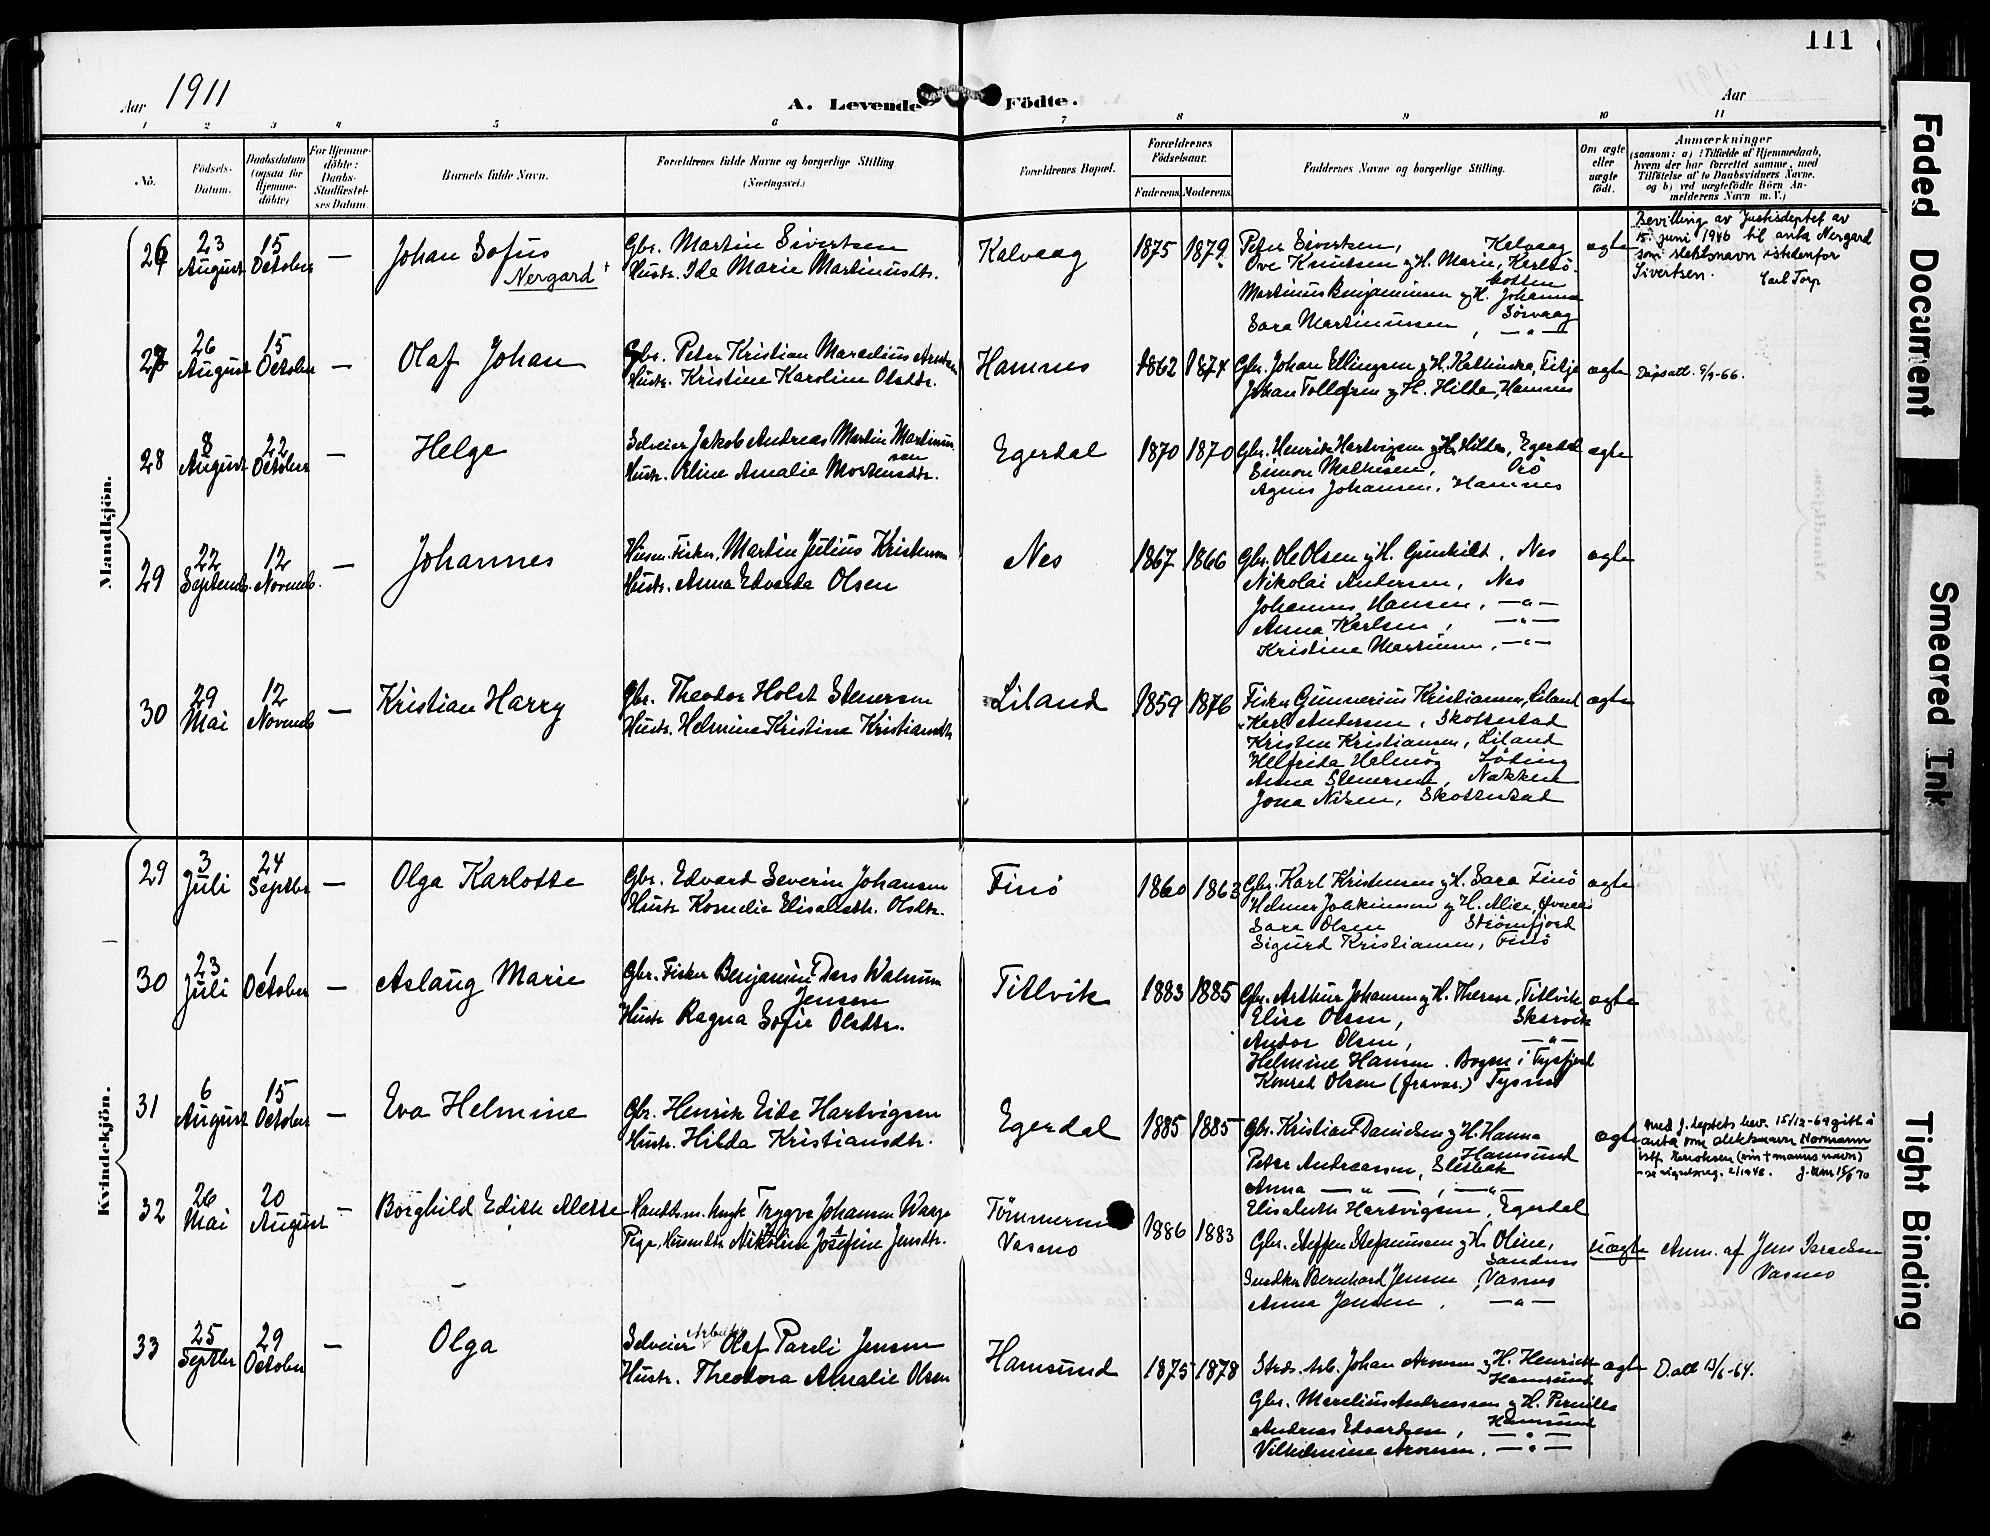 111
Aar 1911
A. Levende Födte.
Aar
1 2 3 4 5 6 7 8 9 10 11
No.
Födsels-
Datum.
Daabsdatum
(ogsaa for
Hjemme-
döbte)
For Hjemme-
döbte:
Daabs-
Stadfæstel-
ses Datum.
Barnets fulde Navn.
Forældrenes fulde Navne og borgerlige Stilling
(Næringsvei.)
Forældrenes Bopæl.
Forældrenes
Födselsaar.
Faderens.
Moderens.
Faddernes Navne og borgerlige Stilling.
Om ægte
eller
uægte
födt.
Anmærkninger
(saasom: a) i Tilfælde af Hjemmedaab,
hvem der har forrettet samme, med
Tilföielse af to Daabsvidners Navne.
og b) ved uægtefödte Börn An-
melderens Navn m. V.)
Mandkjön.
26
23 August
15 October
—
Johan Sofus
Nergard +
Gbr. Martin Sivertsen
Hustr. Ida Marie Martinusdtr.
Kalvaag
1875 1879
Peter Sivertsen, Kalvaag
Ove Knutsen og H. Marie, Karlsö-
botten
Martinus Benjaminsen og H. Johanna
Sörvaag
Sara Martinussen, — " —
ægte
Bevilling av Justisdeptet av
15. juni 1946 til anta Nergard
som slektsnavn istedenfor
Sivertsen. Carl Torp
27
26 August
15 October
—
Olaf Johan
Gbr. Peter Kristian Marelius
Hustr. Kristine Karoline Olsdtr.
Hamnes
1862 1874
Gbr. Johan Ellingsen og H. Kathinka,
Johan Tollefsen og H. Hilda, Hamnes
ægte
Dåpsatt. 9/9-66.
28
8 August
22 October
—
Helge
Selveier Jakob Andreas Martin Martinus-
sen
Hustr. Eline Amalie Mortensdtr.
Egerdal
1870 1870
Gbr. Henrik Hartvigsen og H. Hilda, Egerdal
Simon Mathisen,
Agnes Johansen, Hamnes
ægte
29
22 Septemb.
12 Novemb.
—
Johannes
Husm. Fisker, Martin Julius Kristensen
Hustr. Anna Edvarda Olsen
Nes
1867 1866
Gbr. Ole Olsen og H. Gunhild, Nes
Nikolai Andersen, Nes
Johannes Hansen, — " —
Anna Karlsen, — " —
Kristine Martinsen, — " —
ægte
30
29 Mai
12 Novemb
—
Kristian Harry
Gbr. Theodor Holst Stenersen
Hustr. Helmine Kristine Kristiansdtr
Liland
1859 1876
Fisker Gunnerius Kristiansen, Liland
" Karl Andersen, Skottestad
Kristen Kristiansen, Liland
Helfrida Helmøy Löding
Anna Stenersen, Nakken
Jona Nilsen, Skottestad
ægte
Kvindekjön.
29
3 Juli
24 Septbr
—
Olga Karlotte
Gbr. Edvard Severin Johansen
Hustr Kornelie Elisabeth. Olsdtr.
Finö
1860 1863
Gbr. Karl Kristensen og H. Sara Finö
Helmer Joakimsen og H. Alice,
Sara Olsen Strömfjord
Sigurd Kristiansen, Finö
ægte
30
23 Juli
1 October
—
Aslaug Marie
Gbr. Fisker Benjamin Dars Walnum
Jensen
Hustr Ragna Sofie Olsdtr.
Titlvik
1883 1885
Gbr. Arthur Johansen og H. Therese, Titlvik
Elise Olsen, Skarvik
Andor Olsen, — " —
Helmine Hansen. Bogen i Tysfjord
Konrad Olsen (fravær.) Tysnes
ægte
31
6 August
15 October
—
Eva Helmine
Gbr. Henrik Eide Hartvigsen
Hustr. Hilda Kristiansdtr.
Egerdal
1885 1885
Gbr. Kristian Danielsen og H. Hanna
Hamsund
Peter Andreassen, Slesbak
Anna — " —, — " —
Elisabeth Hartvigsen, Egerdal
ægte
Med J.deptets bev. 15/12-69 gitt å
anta som slektsnavn Normann
istf. Eriksen (sin † manns navn)
15/1 70
32
26 Mai
20 August
—
Borghild Edith Alette
Handelsm. Trygve Johansen Waage
Pige, Husmdtr Nikoline Josefine Jensdtr.
Tömmernes
Vasmo
1886 1883
Gbr. Steffen Stefanussen og H. Oline,
Sandnes
Snedker Bernhard Jensen, Vasmo
Anna Jensen, — " —
uægte
Anm. af Jens
Vasmo
33
25 Septbr
29 October
—
Olga
Selveier Arbeider Olaf Pareli Jensen
Hustr. Theodora Amalie Olsen
Hamsund
1875 1878
Johan Arnesen og H. Henrikke
Hamsund
Gbr. Marelius Andreassen og H. Pernille
Hamsund
Andreas Edvardsen, — " —
Vilhelmine Arnesen, — " —
ægte
D.att 13/6-64.
Faded Document
Smeared Ink
Tight Binding